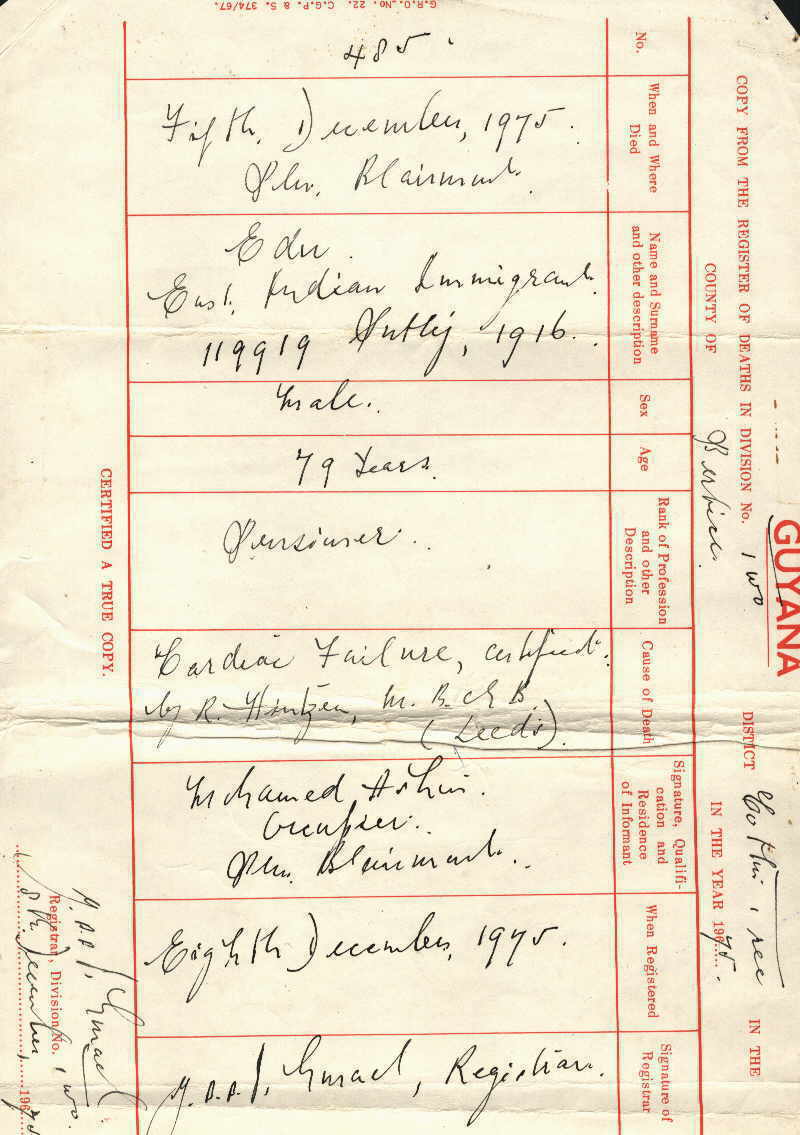 G.R.O. No. 22. C.G.P. & S. 374/67.
GUYANA
COPY FROM THE REGISTER OF DEATHS IN DIVISION No. Two DISTICT Cotton Tree IN THE
COUNTY OF Berbice. IN THE YEAR 19675.
No.
485.
When and Where
Died
Fifth, December, 1975.
Pln. Blairmont.
Name and Surname
and other description
Edu.
East Indian Immigrant.
119919 Sutlej, 1916.
Sex
Male.
Age
79 Years.
Rank of Profession
and other
Description
Pensioner.
Cause of Death
Cardiac Failure, certified
by R. Hintzen, M.B. Ch B.
(Leeds).
Signature, Qualifi-
cation and
Residence
of Informant
Mohamed
Occupier.
Pln. Blairmont.
When Registered
Eighth December, 1975.
Signature of
Registrar
Registrar.
CERTIFIED A TRUE COPY.
Registrar, Division No. Two.
December, 19675